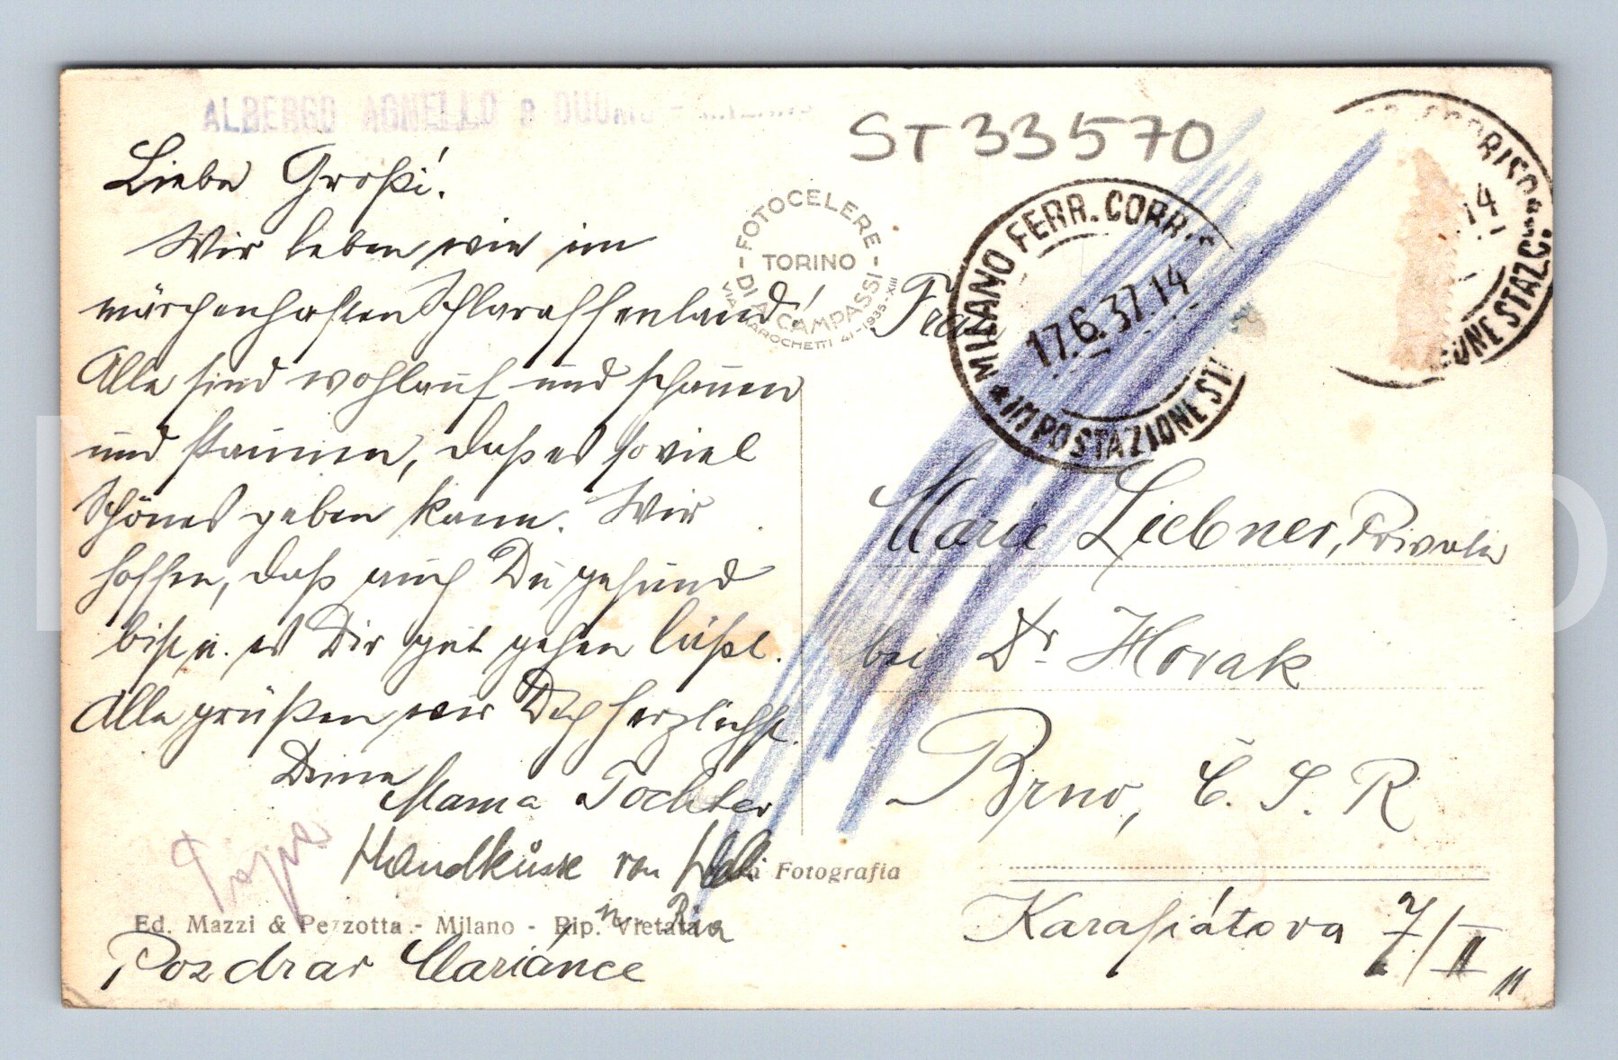 ALBERGO AGNELLO e DUOMO
ST33570
Liebe Großi!
Wir leben wie im
märchenhaften Schlaraffenland!
Alle sind wohlauf und schauen
und staunen, daß es so viel
Schönes geben kann. Wir
hoffen, daß auch Du gesund
bist u. es Dir gut gehen läßt.
Alle grüßen wir Dich herzlichst.
Deine
Mama Tochter
Handküsse von
u. Ria
Pozdrav Mariánce
FOTOCELERE
TORINO
DI A. CAMPASSI
VIA MAROCHETTI 41-1935-XIII
MILANO FERR. CORRIS
17.6.37.14
IMPOSTAZIONE ST
CORRISP
14
IONE STAZ.C
Frau
Marie Liebner, Private
bei Dr Horak
Brno, Č. S. R
Karafiátova 7/II
Fotografia
Ed. Mazzi & Pezzotta - Milano - Rip. Vietata